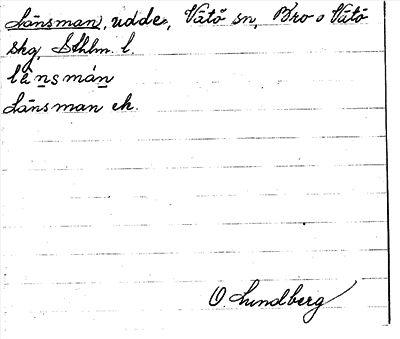 Länsman, udde, Vätö sn, Bro o Vätö
skg, Sthlm. l.
lä̀nsmán
Länsman ek.
O. Lundberg